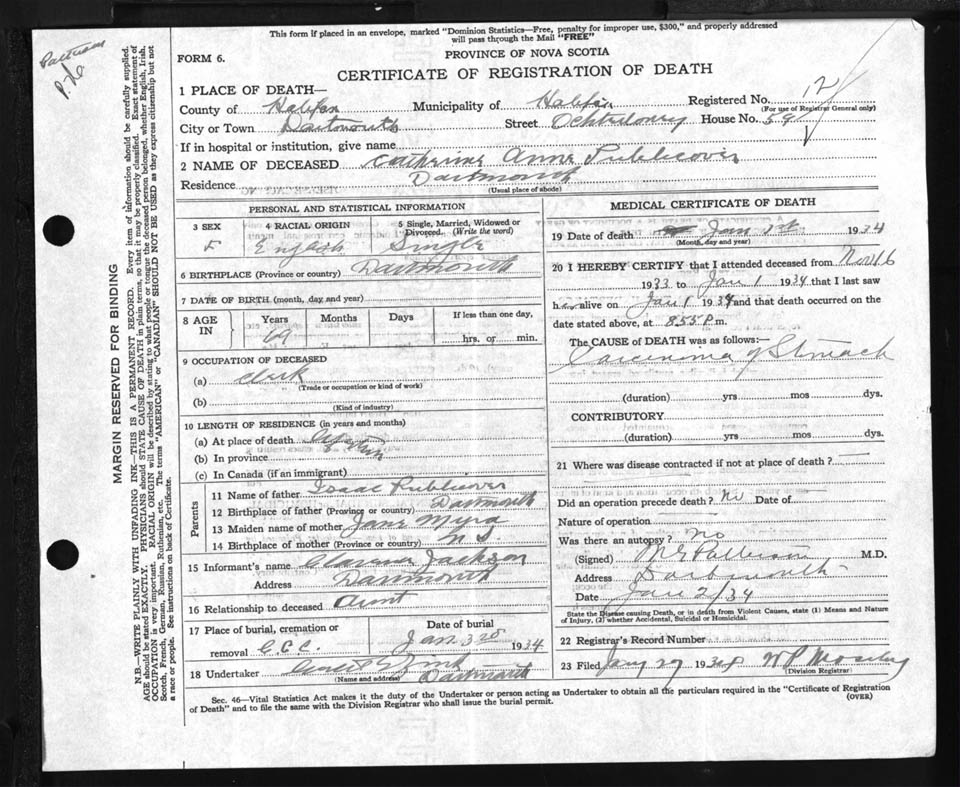 This form if placed in an envelope, marked "Dominion Statistics—Free, penalty for improper use, $300," and properly addressed
will pass through the Mail "FREE"
FORM 6.
PROVINCE OF NOVA SCOTIA
CERTIFICATE OF REGISTRATION OF DEATH
P. 26
MARGIN RESERVED FOR BINDING
N.B.—WRITE PLAINLY WITH UNFADING INK—THIS IS A PERMANENT RECORD. Every item of information should be carefully supplied.
AGE should be stated EXACTLY. PHYSICIANS should STATE CAUSE OF DEATH in plain terms, so that it may be properly classified. Exact statement of
OCCUPATION is very important. RACIAL ORIGIN will be described by stating to what people or tongue the deceased person belonged, whether English, Irish,
Scotch, French, German, Russian, Ruthenian, etc. The terms "AMERICAN" or "CANADIAN" SHOULD NOT BE USED as they express citizenship but not
a race or people. See instructions on back of Certificate.
1 PLACE OF DEATH—
County of Halifax Municipality of Halifax Registered No. 12
(For use of Registrar General only)
City or Town Dartmouth Street Ochterloney House No. 59
If in hospital or institution, give name
2 NAME OF DECEASED Catherine Anne Publicover
Residence Dartmouth
(Usual place of abode)
PERSONAL AND STATISTICAL INFORMATION
3 SEX F
4 RACIAL ORIGIN English
5 Single, Married, Widowed or Divorced. (Write the word) Single
6 BIRTHPLACE (Province or country) Dartmouth
7 DATE OF BIRTH (month, day and year)
8 AGE IN Years 69 Months Days If less than one day, hrs. or min.
9 OCCUPATION OF DECEASED
(a) Clerk
(Trade or occupation or kind of work)
(b)
(Kind of industry)
10 LENGTH OF RESIDENCE (in years and months)
(a) At place of death
(b) In province
(c) In Canada (if an immigrant)
Parents
11 Name of father Isaac Publicover
12 Birthplace of father (Province or country) Dartmouth
13 Maiden name of mother Jane Myra
14 Birthplace of mother (Province or country) N.S.
15 Informant's name Jackson
Address Dartmouth
16 Relationship to deceased Aunt
17 Place of burial, cremation or removal C.C.C.
Date of burial Jan 3 1934
18 Undertaker Dartmouth
(Name and address)
MEDICAL CERTIFICATE OF DEATH
19 Date of death Jan 1st 1934
(Month, day and year)
20 I HEREBY CERTIFY that I attended deceased from Nov 16
1933 to Jan 1 1934 that I last saw
her alive on Jan 1 1934 and that death occurred on
date stated above, at 8.55 P.m.
The CAUSE of DEATH was as follows:—
Carcinoma of Stomach
(duration) yrs mos dys.
CONTRIBUTORY
(duration) yrs mos dys.
21 Where was disease contracted if not at place of death?
Did an operation precede death? No Date of
Nature of operation
Was there an autopsy? No
(Signed) M.D.
Address Dartmouth
Date Jan 2/34
State the Disease causing Death, or in death from Violent Causes, state (1) Means and Nature
of Injury, (2) whether Accidental, Suicidal or Homicidal.
22 Registrar's Record Number
23 Filed Jany 27 1934
(Division Registrar)
Sec. 46—Vital Statistics Act makes it the duty of the Undertaker or person acting as Undertaker to obtain all the particulars required in the "Certificate of Registration
of Death" and to file the same with the Division Registrar who shall issue the burial permit.
(OVER)